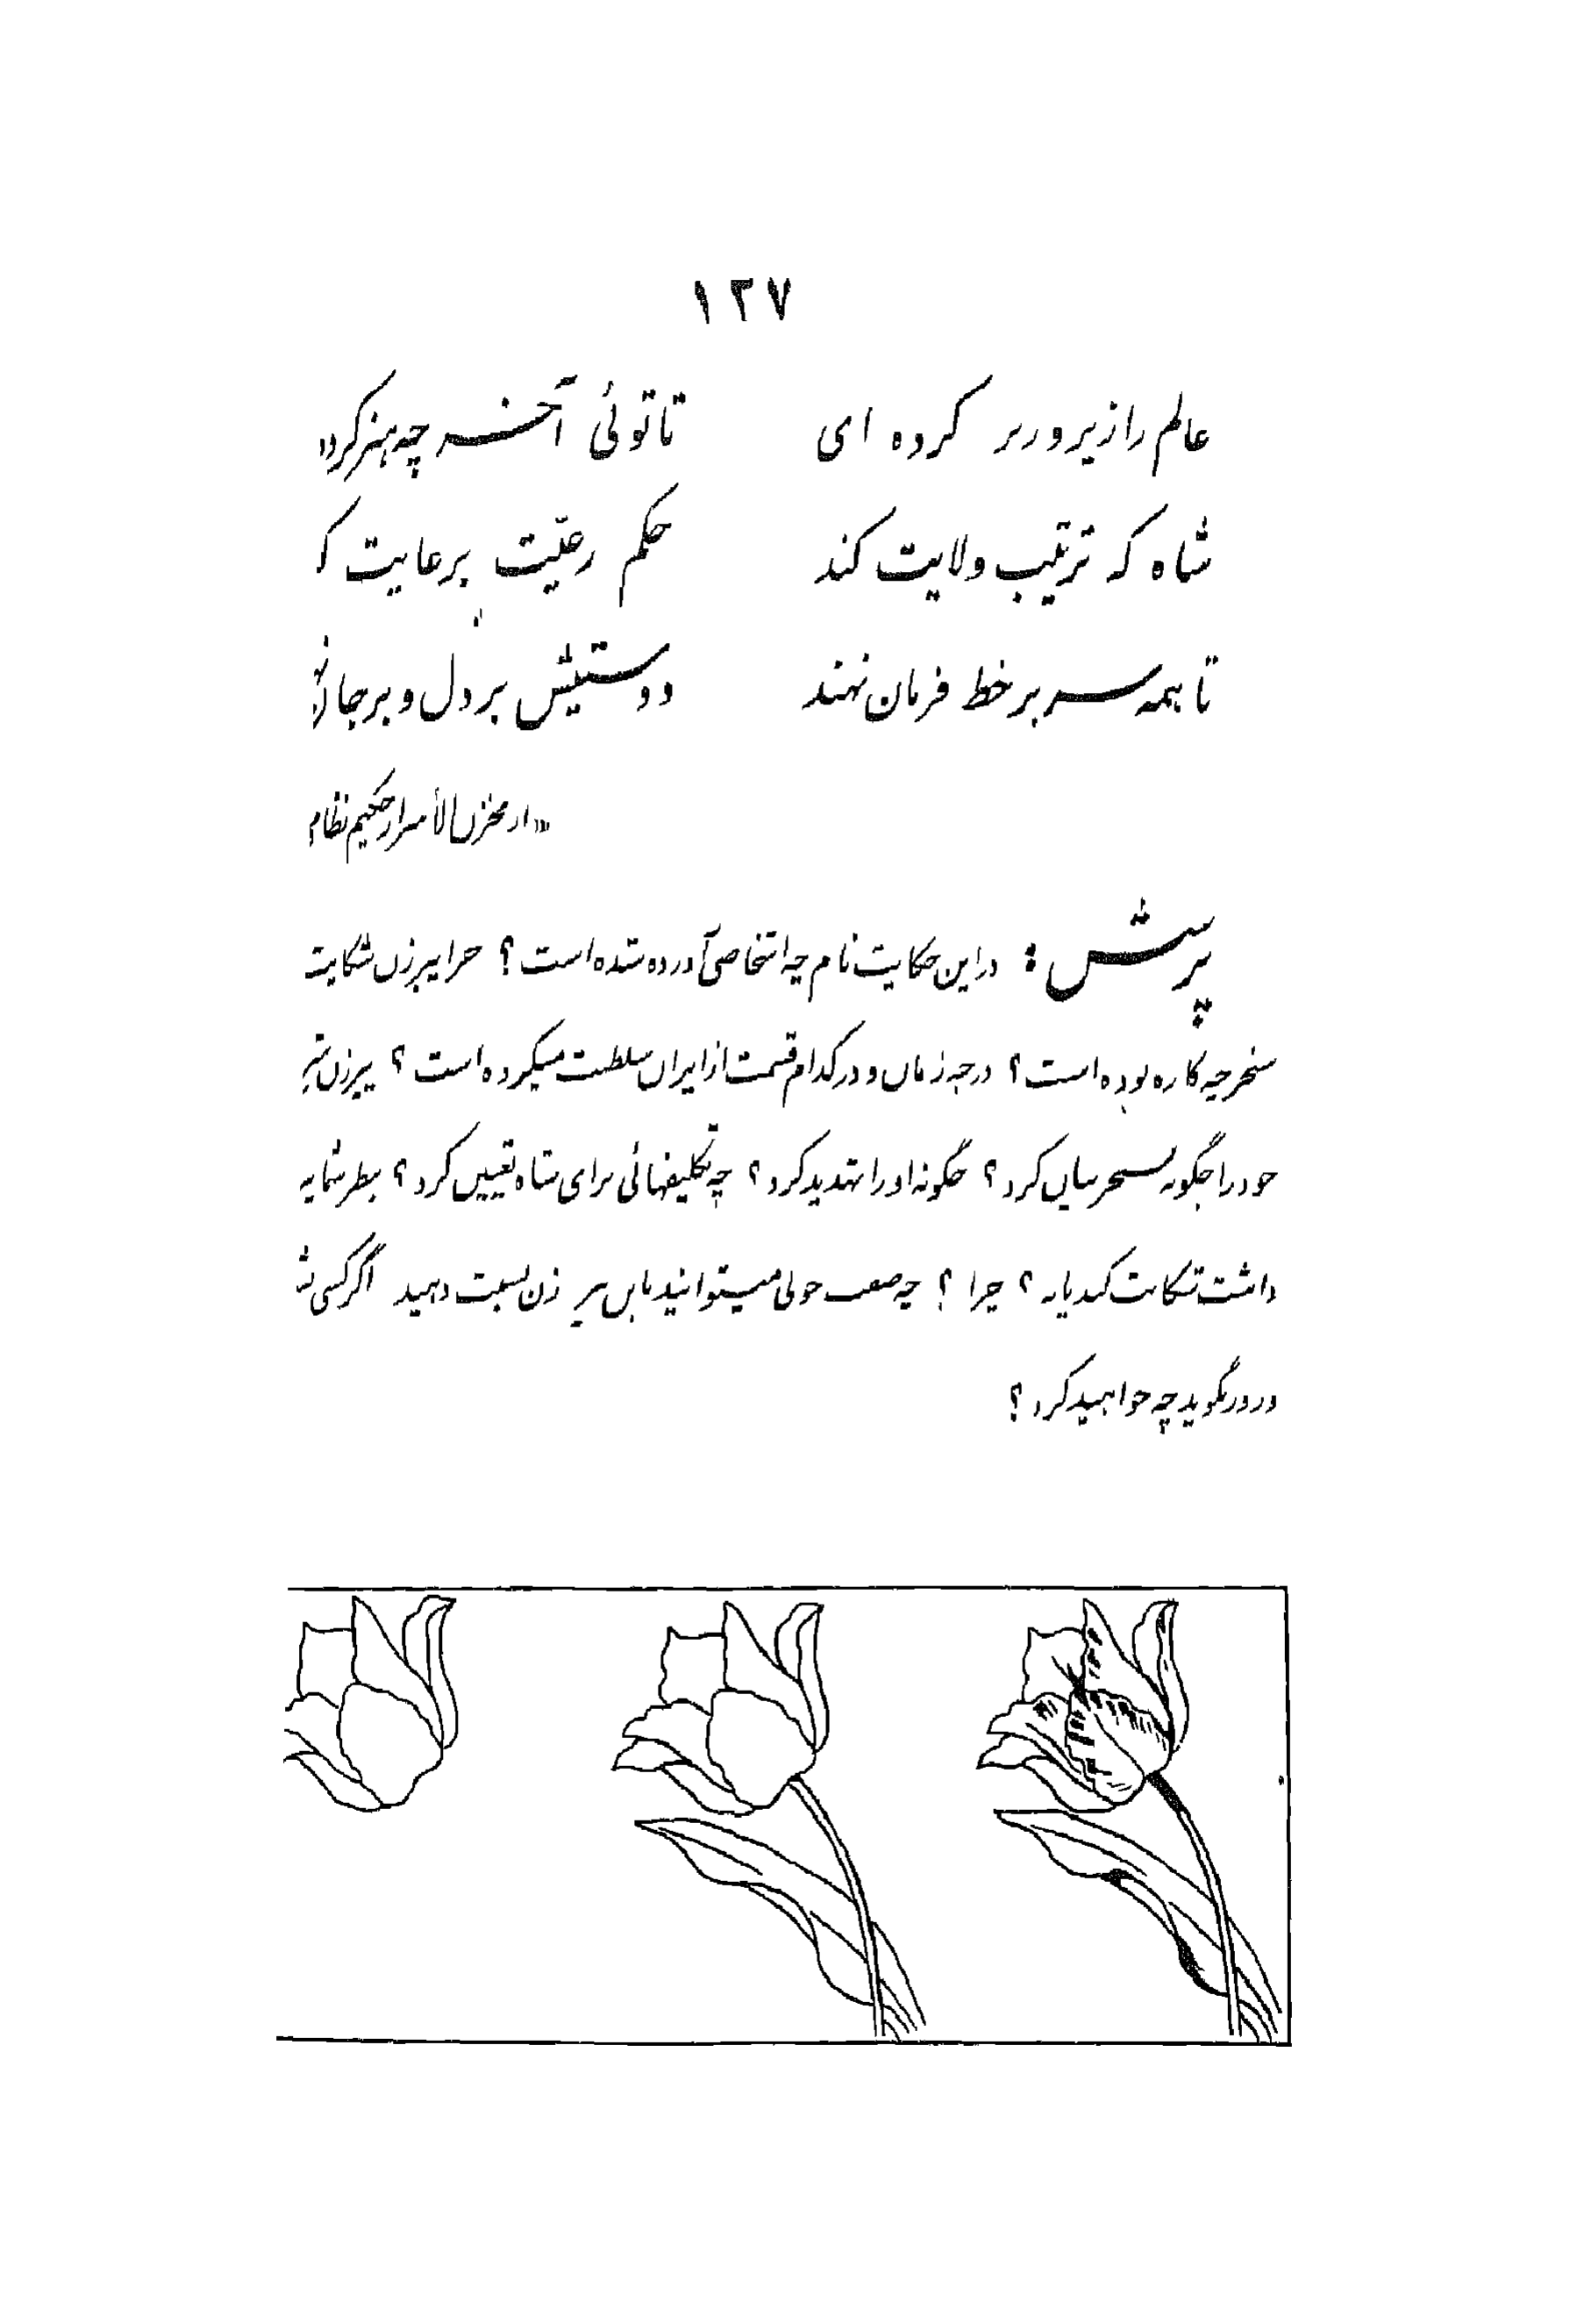 ۱۲۷
عالم را زیر و زبر کرده ای تا توئی آخر چه هنر کرده
شاه که ترتیب ولایت کند حکم رعیّت برعایت ک
تا همه سر بر خط فرمان نهند دوستیش بر دل و بر جان
«از مخزن الأسرار حکیم نظام
پرسش : در این حکایت نام چه اشخاصی آورده شده است ؟ چرا پیرزن شکایت
سنجر چه کاره بوده است ؟ در چه زمان و در کدام قسمت از ایران سلطنت میکرده است ؟ پیرزن
خود را چگونه بسنجر بیان کرد ؟ چگونه او را تهدید کرد ؟ چه تکلیفهائی برای شاه تعیین کرد ؟ بنظر شما
داشت شکایت کند یا نه ؟ چرا ؟ چه صفت خوبی میتوانید باین پیر زن نسبت دهید اگر کسی
زور بگوید چه خواهید کرد ؟